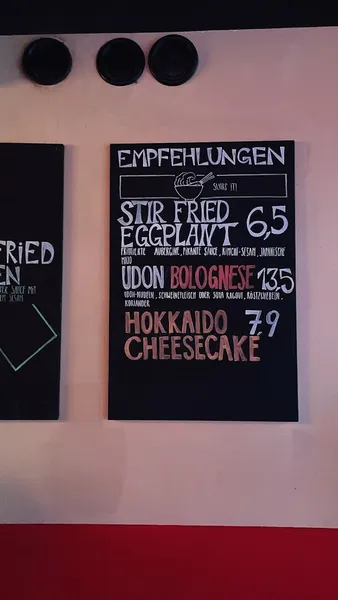 EMPFEHLUNGEN
SLURP IT!
STIR FRIED
EGGPLANT 6,5
FRITIERTE AUBERGINE, PIKANTE SAUCE, KIMCHI-SESAM, JAPANISCHE
MAYO
UDON BOLOGNESE 13,5
UDON-NUDELN, SCHWEINEFLEISCH ODER SOJA RAGOUT, RÖSTZWIEBELN,
KORIANDER
HOKKAIDO 7,9
CHEESECAKE
FRIED
EN
SAUCE MIT
SESAM